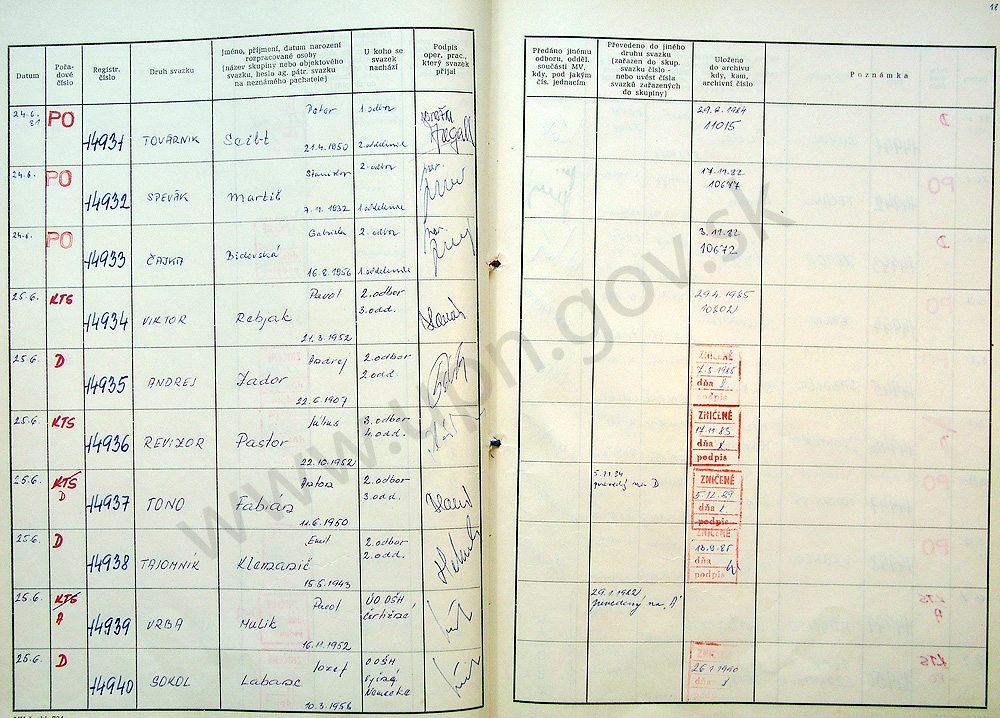 18
Datum
Pořa-
dové
číslo
Registr.
číslo
Druh svazku
Jméno, příjmení, datum narození
rozpracované osoby
(název skupiny nebo objektového
svazku, heslo ag. pátr. svazku
na neznámého pachatele)
U koho se
svazek
nachází
Podpis
oper. prac.,
který svazek
přijal
Předáno jinému
odboru, odděl.
součásti MV,
kdy, pod jakým
čís. jednacím
Převedeno do jiného
druhu svazku
(zařazen do skup.
svazku číslo -
nebo uvést čísla
svazků zařazených
do skupiny)
Uloženo
do archivu
kdy, kam,
archivní číslo
Poznámka
24.6.
81
PO
14931
TOVÁRNIK
Peter
Seibt
21.4.1950
1. odbor
2. oddelenie
29.2.1984
11015
24.6.
PO
14932
SPEVÁK
Stanislav
Martiš
7.11.1932
2. odbor
1. oddelenie
17.11.82
10677
24.6.
PO
14933
ČAJKA
Gabriela
Bidovská
16.8.1956
2. odbor
1. oddelenie
3.11.82
10672
25.6.
KTS
14934
VIKTOR
Pavol
Rebjak
21.3.1952
2. odbor
3. odd.
29.4.1985
10802
25.6.
D
14935
ANDREJ
Andrej
Zador
22.6.1907
2. odbor
2. odd.
ZNIČENÉ
7.5.1985
dňa
podpis
25.6.
KTS
14936
REVIZOR
Július
Pastor
22.10.1952
3. odbor
4. odd.
ZNIČENÉ
17.11.83
dňa
podpis
25.6.
KTS
D
14937
TONO
Anton
Fabián
11.6.1950
2. odbor
3. odd.
5.11.84
prevedený na D
ZNIČENÉ
5.12.89
dňa
podpis
25.6.
D
14938
TAJOMNÍK
Emil
15.5.1943
2. odbor
2. odd.
ZNIČENÉ
dňa
podpis
25.6.
KTS
A
14939
VRBA
Pavol
Malik
16.11.1952
ÚO OŠH
29.1.1982
prevedený na „A"
25.6.
D
14940
SOKOL
Jozef
Labanc
10.3.1956
OOŠH
Vyšné
Nemecké
26.1.1980
dňa
podpis
www.upn.gov.sk